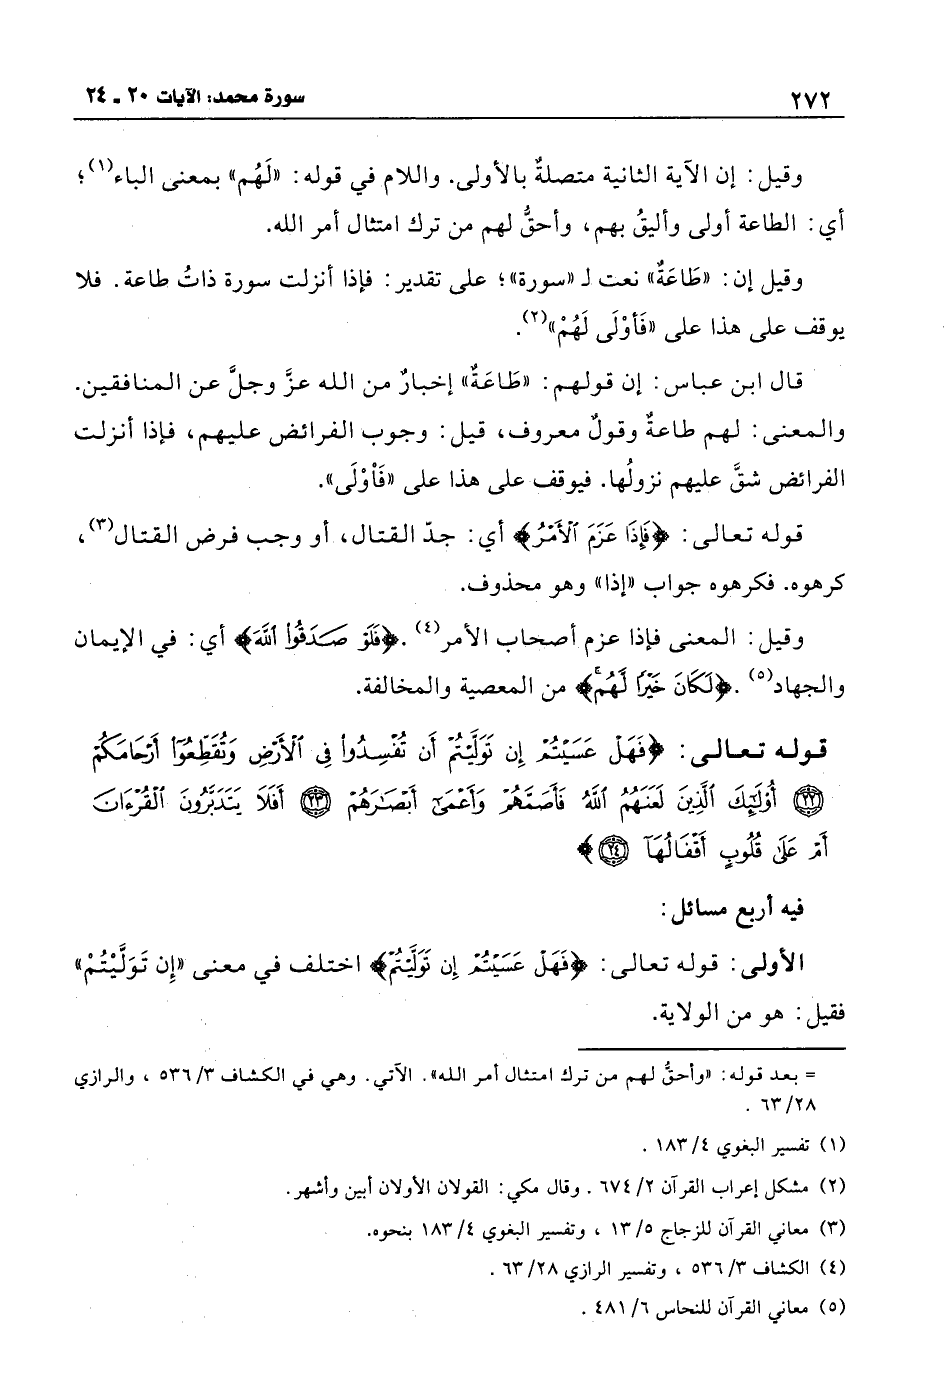 ٢٧٢ سورة محمد: الآيات ٢٠ ـ ٢٤
وقيل: إن الآية الثانية متصلةٌ بالأولى. واللام في قوله: «لَهُم» بمعنى الباء(١)؛
أي: الطاعة أولى وأليقُ بهم، وأحقُّ لهم من ترك امتثال أمر الله.
وقيل إن: «طَاعَةٌ» نعت لـ «سورة»؛ على تقدير: فإذا أنزلت سورة ذاتُ طاعة. فلا
يوقف على هذا على «فَأَوْلَى لَهُمْ»(٢).
قال ابن عباس: إن قولهم: «طَاعَةٌ» إخبارٌ من الله عزَّ وجلَّ عن المنافقين.
والمعنى: لهم طاعةٌ وقولٌ معروف، قيل: وجوب الفرائض عليهم، فإذا أنزلت
الفرائض شقَّ عليهم نزولُها. فيوقف على هذا على «فَأَوْلَى».
قوله تعالى: ﴿فَإِذَا عَزَمَ ٱلْأَمْرُ﴾ أي: جدّ القتال، أو وجب فرض القتال(٣)،
كرهوه. فكرهوه جواب «إذا» وهو محذوف.
وقيل: المعنى فإذا عزم أصحاب الأمر(٤). ﴿فَلَوْ صَدَقُوا۟ ٱللَّهَ﴾ أي: في الإيمان
والجهاد(٥). ﴿لَكَانَ خَيْرًا لَّهُمْ ۚ﴾ من المعصية والمخالفة.
قوله تعالى: ﴿فَهَلْ عَسَيْتُمْ إِن تَوَلَّيْتُمْ أَن تُفْسِدُوا۟ فِى ٱلْأَرْضِ وَتُقَطِّعُوٓا۟ أَرْحَامَكُمْ
٢٢ أُو۟لَٰٓئِكَ ٱلَّذِينَ لَعَنَهُمُ ٱللَّهُ فَأَصَمَّهُمْ وَأَعْمَىٰٓ أَبْصَٰرَهُمْ ٢٣ أَفَلَا يَتَدَبَّرُونَ ٱلْقُرْءَانَ
أَمْ عَلَىٰ قُلُوبٍ أَقْفَالُهَآ ٢٤﴾
فيه أربع مسائل:
الأولى: قوله تعالى: ﴿فَهَلْ عَسَيْتُمْ إِن تَوَلَّيْتُمْ﴾ اختلف في معنى «إِن تَوَلَّيْتُمْ»
فقيل: هو من الولاية.
= بعد قوله: «وأحقُّ لهم من ترك امتثال أمر الله». الآتي. وهي في الكشاف ٥٣٦/٣ ، والرازي
٦٣/٢٨ .
(١) تفسير البغوي ١٨٣/٤ .
(٢) مشكل إعراب القرآن ٦٧٤/٢ . وقال مكي: القولان الأولان أبين وأشهر.
(٣) معاني القرآن للزجاج ١٣/٥ ، وتفسير البغوي ١٨٣/٤ بنحوه.
(٤) الكشاف ٥٣٦/٣ ، وتفسير الرازي ٦٣/٢٨ .
(٥) معاني القرآن للنحاس ٤٨١/٦ .